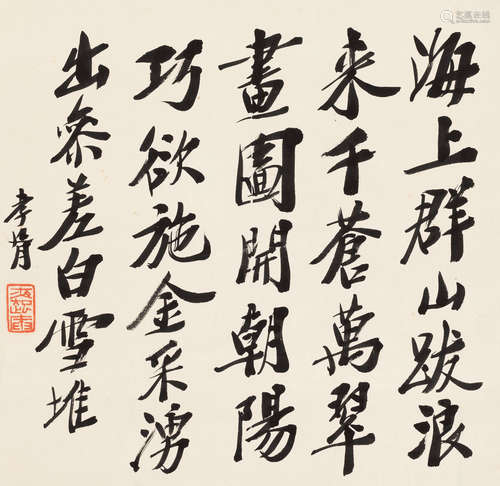 海上群山跋浪
来千蒼萬翠
畫圖開朝陽
巧欲施金采湧
出參差白雪堆
孝胥